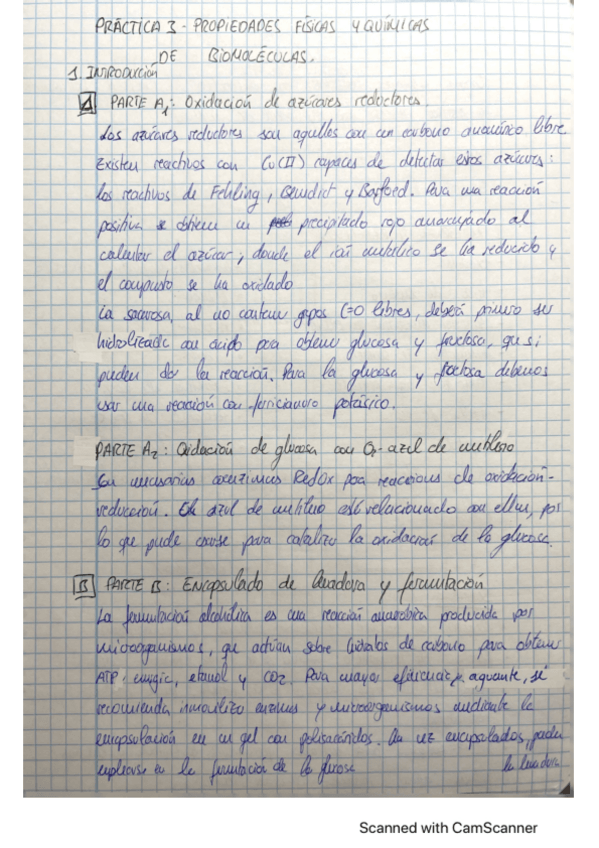 PRÁCTICA 3 - PROPIEDADES FÍSICAS Y QUÍMICAS
DE BIOMOLÉCULAS.
1. INTRODUCCIÓN
A PARTE A1: Oxidación de azúcares reductores.
Los azúcares reductores son aquellos con un carbono anomérico libre
Existen reactivos con Cu(II) capaces de detectar estos azúcares:
los reactivos de Fehling, Benedict y Barford. Para una reacción
positiva se obtiene un precipitado rojo anaranjado al
calentar el azúcar, donde el ión metálico se ha reducido y
el compuesto se ha oxidado
La sacarosa, al no contener grupos C=O libres, deberá primero ser
hidrolizada con ácido para obtener glucosa y fructosa, que si
pueden dar la reacción. Para la glucosa y fructosa debemos
usar una reacción con ferricianuro potásico.
PARTE A2: Oxidación de glucosa con O2-azul de metileno
Son necesarias Redox para reacciones de oxidación-
reducción. El azul de metileno está relacionado con ellas, por
lo que puede usarse para catalizar la oxidación de la glucosa.
B PARTE B: Encapsulado de levadura y fermentación
La fermentación alcohólica es una reacción anaeróbica producida por
microorganismos, que actúan sobre hidratos de carbono para obtener
ATP: energía, etanol y CO2. Para mayor eficiencia y aguante, se
recomienda inmovilizar enzimas y microorganismos mediante la
encapsulación en un gel con polisacáridos. Una vez encapsulados, puede
emplearse en la fermentación de la glucosa la levadura
Scanned with CamScanner